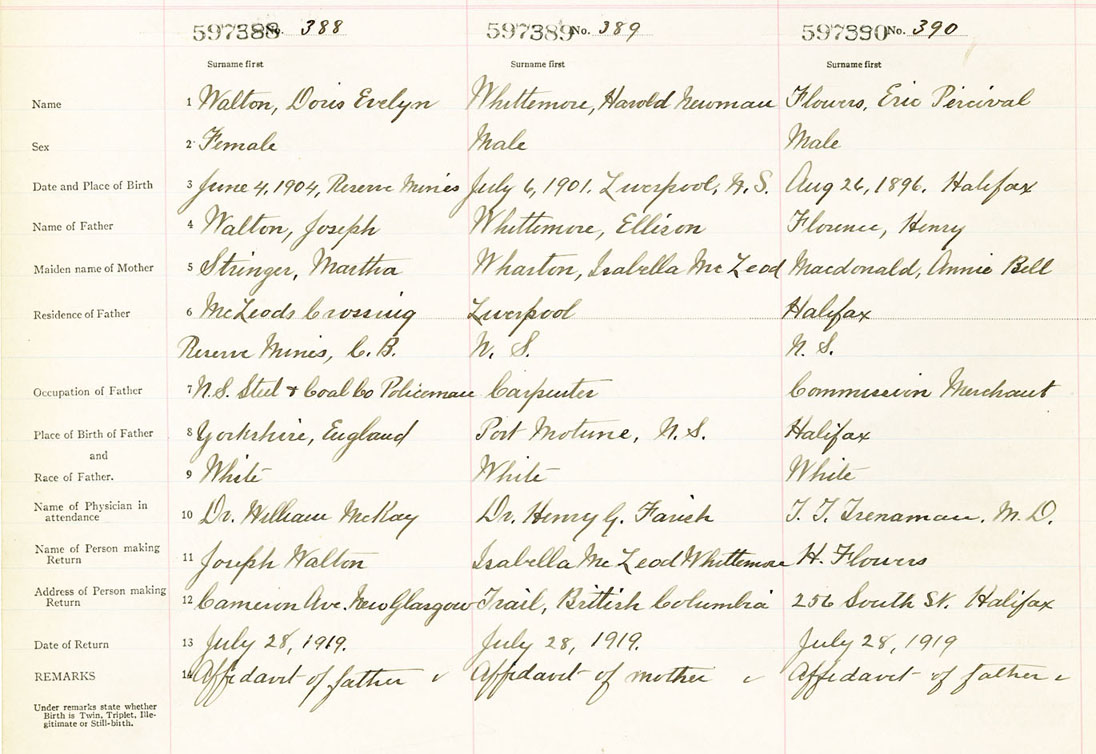 597388 No. 388 597389 No. 389 597390 No. 390
Surname first Surname first Surname first
Name 1 Walton, Doris Evelyn Whittemore, Harold Newman Flowers, Eric Percival
Sex 2 Female Male Male
Date and Place of Birth 3 June 4, 1904, Reserve Mines July 6, 1901. Liverpool, N.S. Aug 26, 1896. Halifax
Name of Father 4 Walton, Joseph Whittemore, Ellison Florence, Henry
Maiden name of Mother 5 Stringer, Martha Wharton, Isabella McLeod Macdonald, Annie Bell
Residence of Father 6 McLeods Crossing Liverpool Halifax
Reserve Mines, C.B. N. S. N. S.
Occupation of Father 7 N.S. Steel + Coal Co Policeman Carpenter Commission Merchant
Place of Birth of Father 8 Yorkshire, England Port Motune, N.S. Halifax
and
Race of Father. 9 White White White
Name of Physician in
attendance 10 Dr. William McKay Dr. Henry G. Farish T. T. Trenaman. M.D.
Name of Person making
Return 11 Joseph Walton Isabella McLeod Whittemore H. Flowers
Address of Person making
Return 12 Cameron Ave. New Glasgow Trail, British Columbia 256 South St. Halifax
Date of Return 13 July 28, 1919. July 28, 1919. July 28, 1919
REMARKS 14 Affidavit of father Affidavit of mother Affidavit of father
Under remarks state whether
Birth is Twin, Triplet, Ille-
gitimate or Still-birth.